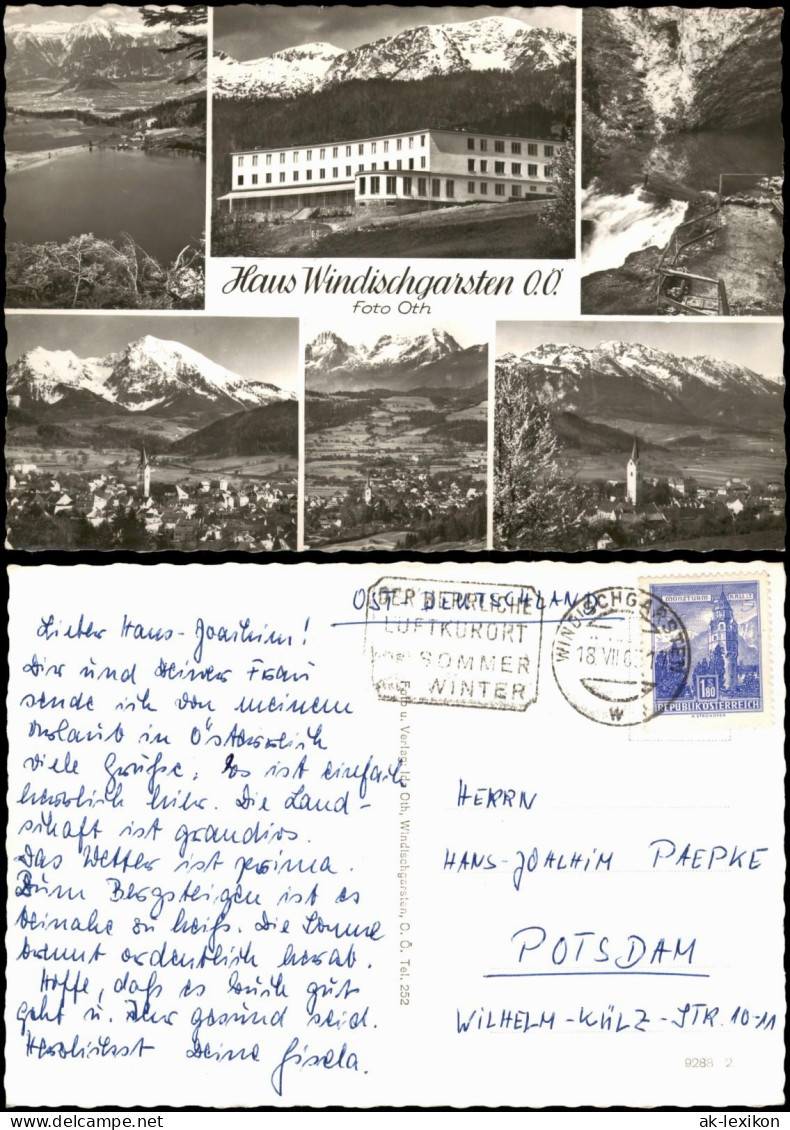 Haus Windischgarsten O.Ö.
Foto Oth
OST-DEUTSCHLAND
DER HERRLICHE
LUFTKURORT
SOMMER
WINTER
WINDISCHGARSTEN
18.VII.6
w
MÜNZTURM HALL
1.80
REPUBLIK ÖSTERREICH
Lieber Hans-Joachim!
Dir und Deiner Frau
sende ich von meinem
Urlaub in Österreich
viele Grüße. Es ist einfach
herrlich hier. Die Land-
schaft ist grandios.
Das Wetter ist prima.
Zum Bergsteigen ist es
beinahe zu heiß. Die Sonne
brennt ordentlich herab.
Hoffe, daß es Euch gut
geht u. Ihr gesund seid.
Herzlichst Deine Gisela.
Foto u. Verlag Oth, Windischgarsten, O. Ö. Tel. 252
HERRN
HANS-JOACHIM PAEPKE
POTSDAM
WILHELM-KÜLZ-STR. 10-11
9288 2
ak-lexikon